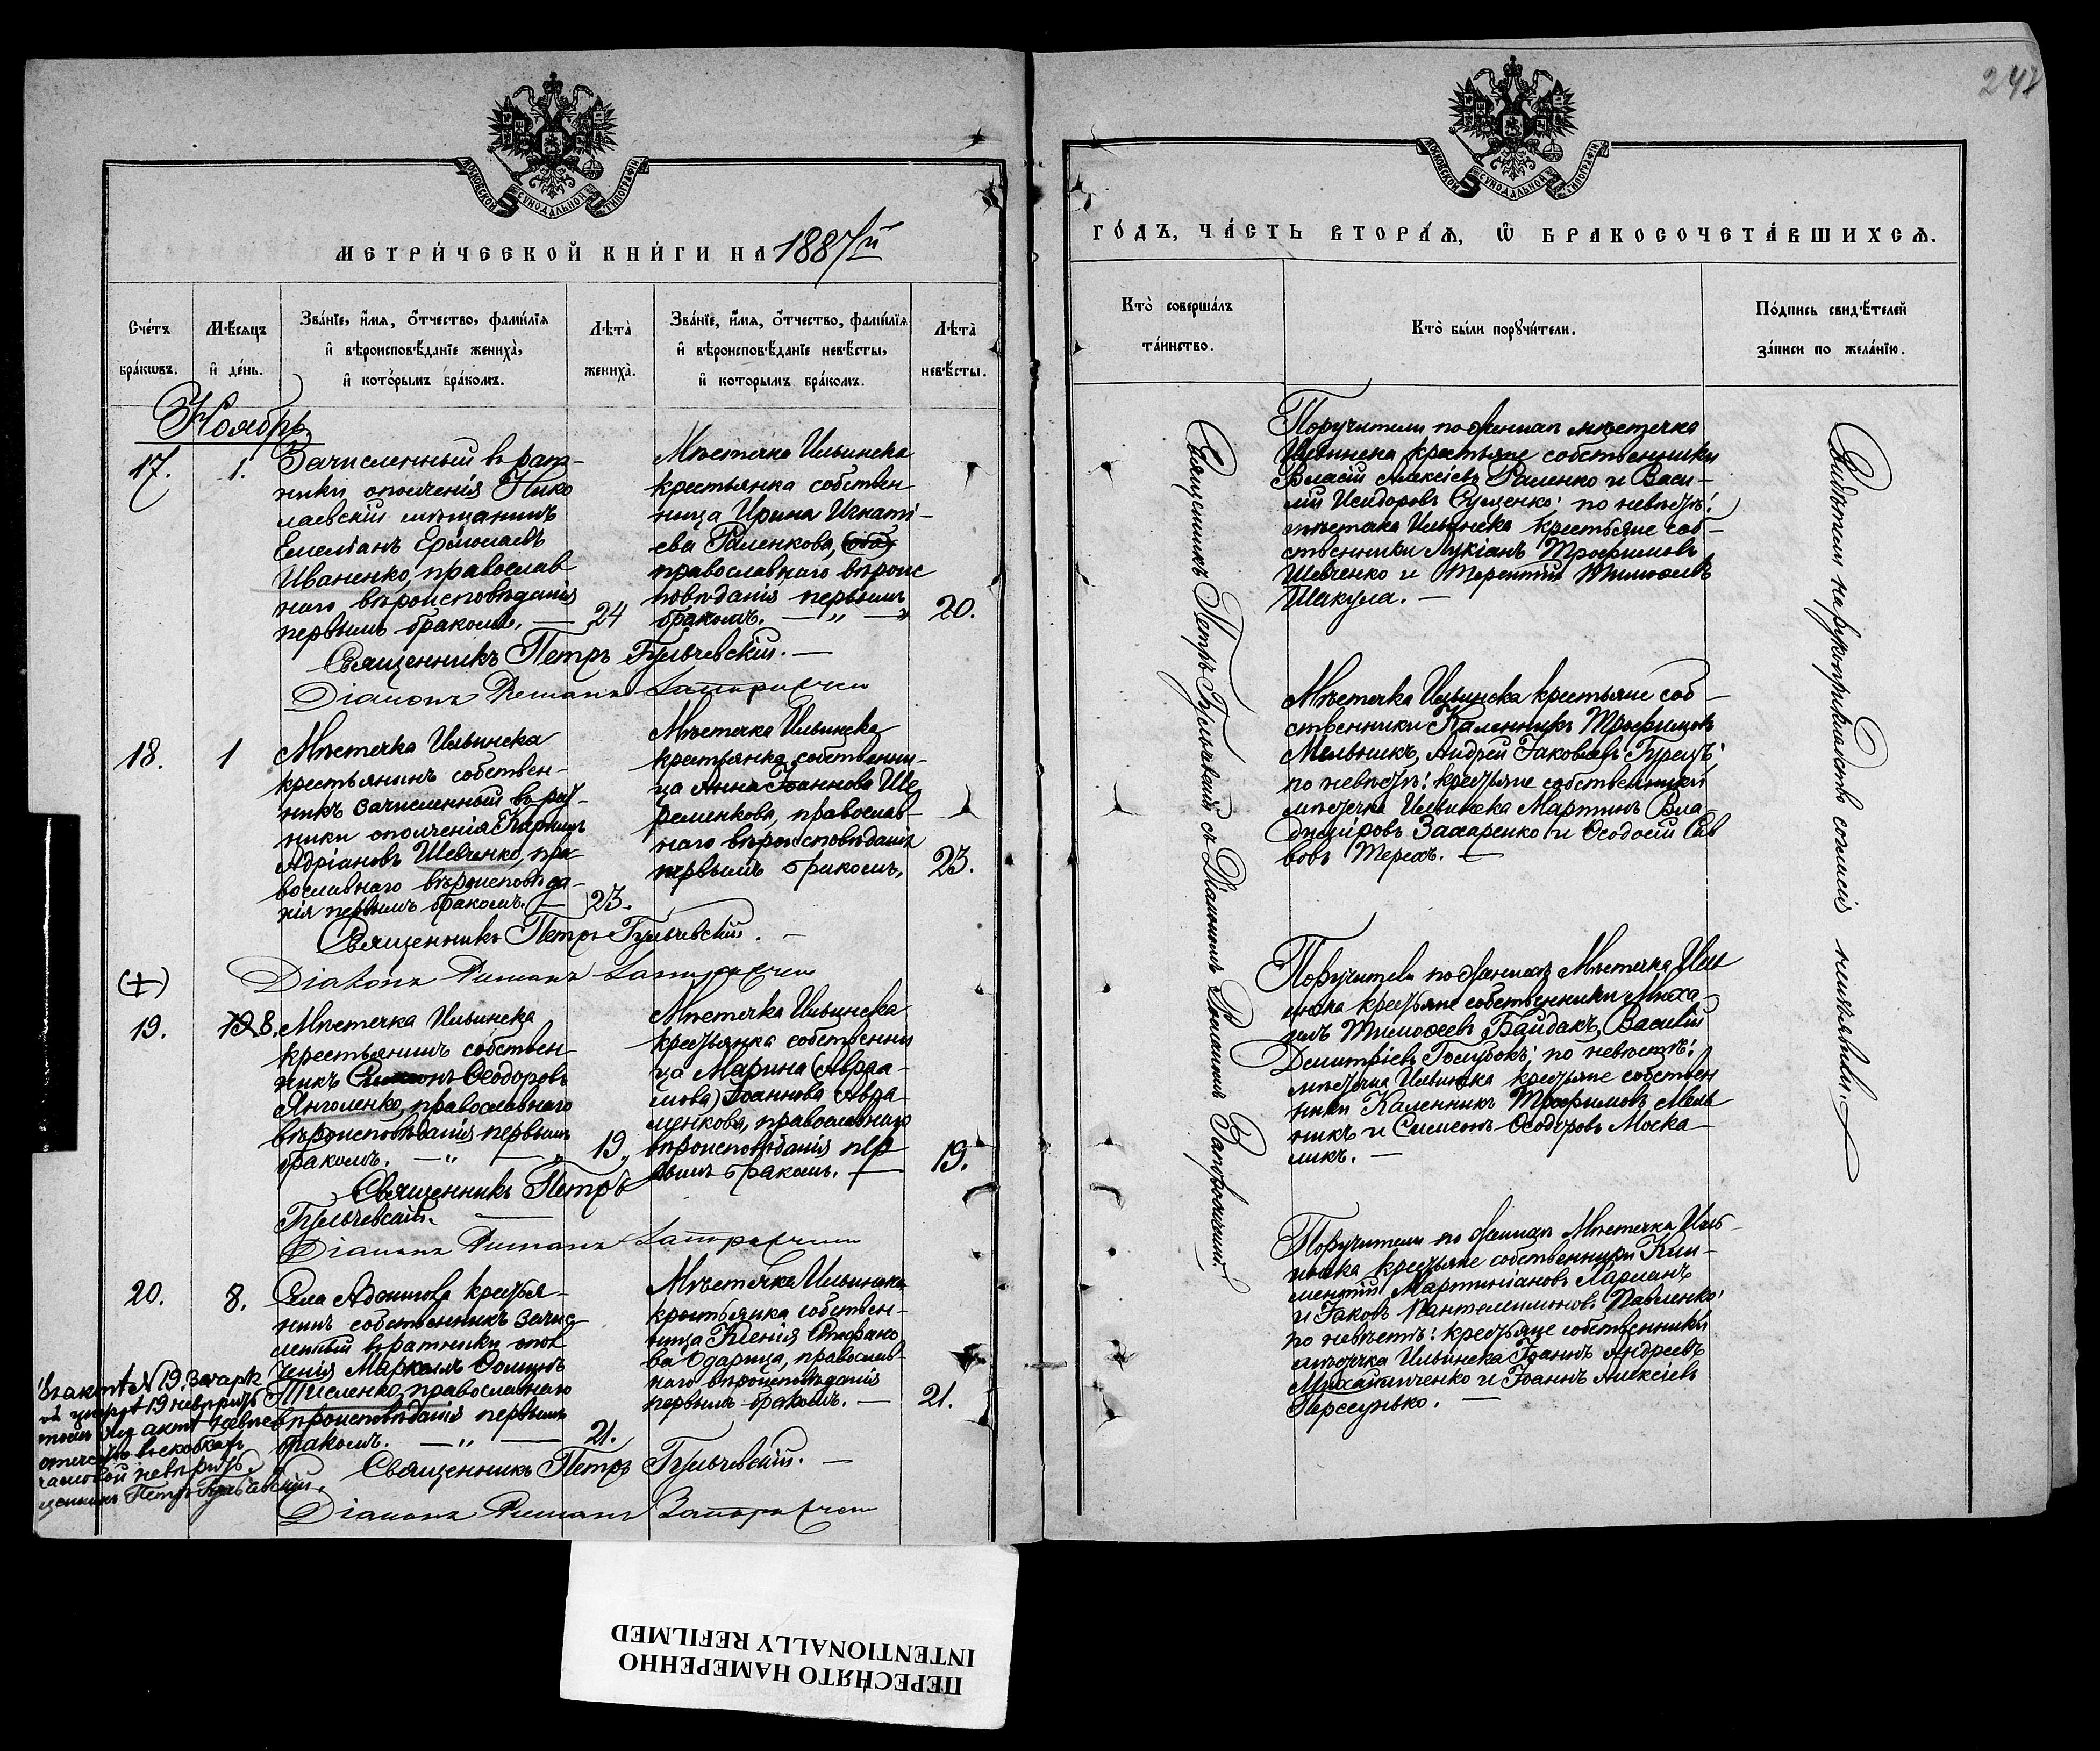 МОСКОВСКОЙ СУНОДАЛЬНОЙ ТИПОГРАФІИ
МЕТРИ́ЧЕСКОЙ КНИ́ГИ НА 1887й
Сче́тъ бра́кѡвъ.
Мѣ́сяцъ и҆ де́нь.
Зва́нїе, и҆́мя, ѻ҆́тчество, фами́лїя
и҆ вѣроисповѣ́данїе жениха̀,
и҆ кото́рымъ бра́комъ.
Лѣ̑та̀ жениха̀.
Зва́нїе, и҆́мя, ѻ҆́тчество, фами́лїя
и҆ вѣроисповѣ́данїе невѣ́сты,
и҆ которымъ бра́комъ.
Лѣ̑та̀ невѣ́сты.
Ноябрь
17.
1.
Зачисленный въ рат-
ники ополченія Нико
лаевскій мѣщанинъ
Емеліанъ Ермолаевъ
Иваненко, православ
наго вѣроисповѣданія
первымъ бракомъ. —
24
Мѣстечка Ильинска
крестьянка собствен-
ница Ирина Игнаті-
ева Раленкова,
православнаго вѣроис
повѣданія первымъ
бракомъ. — „ —
20.
Священникъ Петръ Гульчевскій. —
Діаконъ Романъ
18.
1
Мѣстечка Ильинска
крестьянинъ собствен-
никъ зачисленный въ рат-
ники ополченія Кириллъ
Адріановъ Шевченко, пра
вославнаго вѣроисповѣда-
нія первымъ бракомъ. —
23.
Мѣстечка Ильинска
крестьянка собственни-
ца Анна Іоаннова Ше
ременкова, православ-
наго вѣроисповѣданія
первымъ бракомъ,
23.
Священникъ Петръ Гульчевскій. —
Діаконъ Романъ
(+)
19.
8. Мѣстечка Ильинска
крестьянинъ собствен-
никъ Симеонъ Ѳеодоровъ
Янголенко, православнаго
вѣроисповѣданія первымъ
бракомъ. — „ — „
19.
Мѣстечка Ильинска
крестьянка собственни
ца Марина (Авраа-
мова) Іоаннова Авра-
менкова, православнаго
вѣроисповѣданія пер
вымъ бракомъ. —
19.
Священникъ Петръ
Гульчевскій. —
Діаконъ Романъ
20.
8.
Села Адамовка крестья-
нинъ собственникъ зачис
ленный въ ратники опол
ченія Маркеллъ Ѳоминъ
Писленко, православнаго
вѣроисповѣданія первымъ
бракомъ. — „ —
21.
Мѣстечка Ильинска
крестьянка собствен-
ница Ксенія Стефано
ва Одарица, православ-
наго вѣроисповѣданія
первымъ бракомъ. —
21.
Священникъ Петръ Гульчевскій. —
Діаконъ Романъ
Въ актѣ № 19.
ценникъ Петръ Гульчавскій.
247
МОСКОВСКОЙ СУНОДАЛЬНОЙ ТИПОГРАФІИ
ГО́ДЪ, ЧА́СТЬ ВТОРА́Я, Ѽ БРАКОСОЧЕТА́ВШИХСЯ.
Кто̀ соверша́лъ та́инство.
Кто̀ бы́ли порꙋчи́тели.
По́дпись свидѣ́телей за́писи по жела́нїю.
Священникъ Петръ Гульчавскій съ Діакономъ Романомъ Запорожченкомъ.
Поручители по женихѣ мѣстечка
Ильинска крестьяне собственники
Власій Алексіевъ Раленко и Васи-
лій Исидоровъ Сущенко; по невѣстѣ:
мѣстечка Ильинска крестьяне соб-
ственники Лукіанъ Трофимовъ
Шевченко и Терентій Тимоѳеевъ
Шакула. —
Мѣстечка Ильинска крестьяне соб-
ственники Каленникъ Трофимовъ
Мельникъ, Андрей Іаковлевъ Гурецъ;
по невѣстѣ: крестьяне собственники
мѣстечка Ильинска Мартинъ Вла-
диміровъ Захаренко и Ѳеодосій Сав
вовъ Терехъ. —
Поручители по женихѣ Мѣстечка Иль
инска крестьяне собственники Миха-
илъ Тимоѳеевъ Байдакъ, Василій
Димитріевъ Голубокъ; по невѣстѣ:
мѣстечка Ильинска крестьяне собствен
ники Каленникъ Трофимовъ Мель
никъ и Симеонъ Ѳеодоровъ Моска-
ликъ. —
Поручители по женихѣ Мѣстечка Иль-
инска крестьяне собственники Кли-
ментій Мартиніановъ Ларманъ
и Іаковъ Пантелеимоновъ Павленко;
по невѣстѣ: крестьяне собственники
мѣстечка Ильинска Іоаннъ Андреевъ
Михайличенко и Іоаннъ Алексіевъ
Персунько. —
Свидѣтели на рукоприкладство согласія неизъявили.
ПЕРЕСНЯТО НАМЕРЕННО
INTENTIONALLY REFILMED